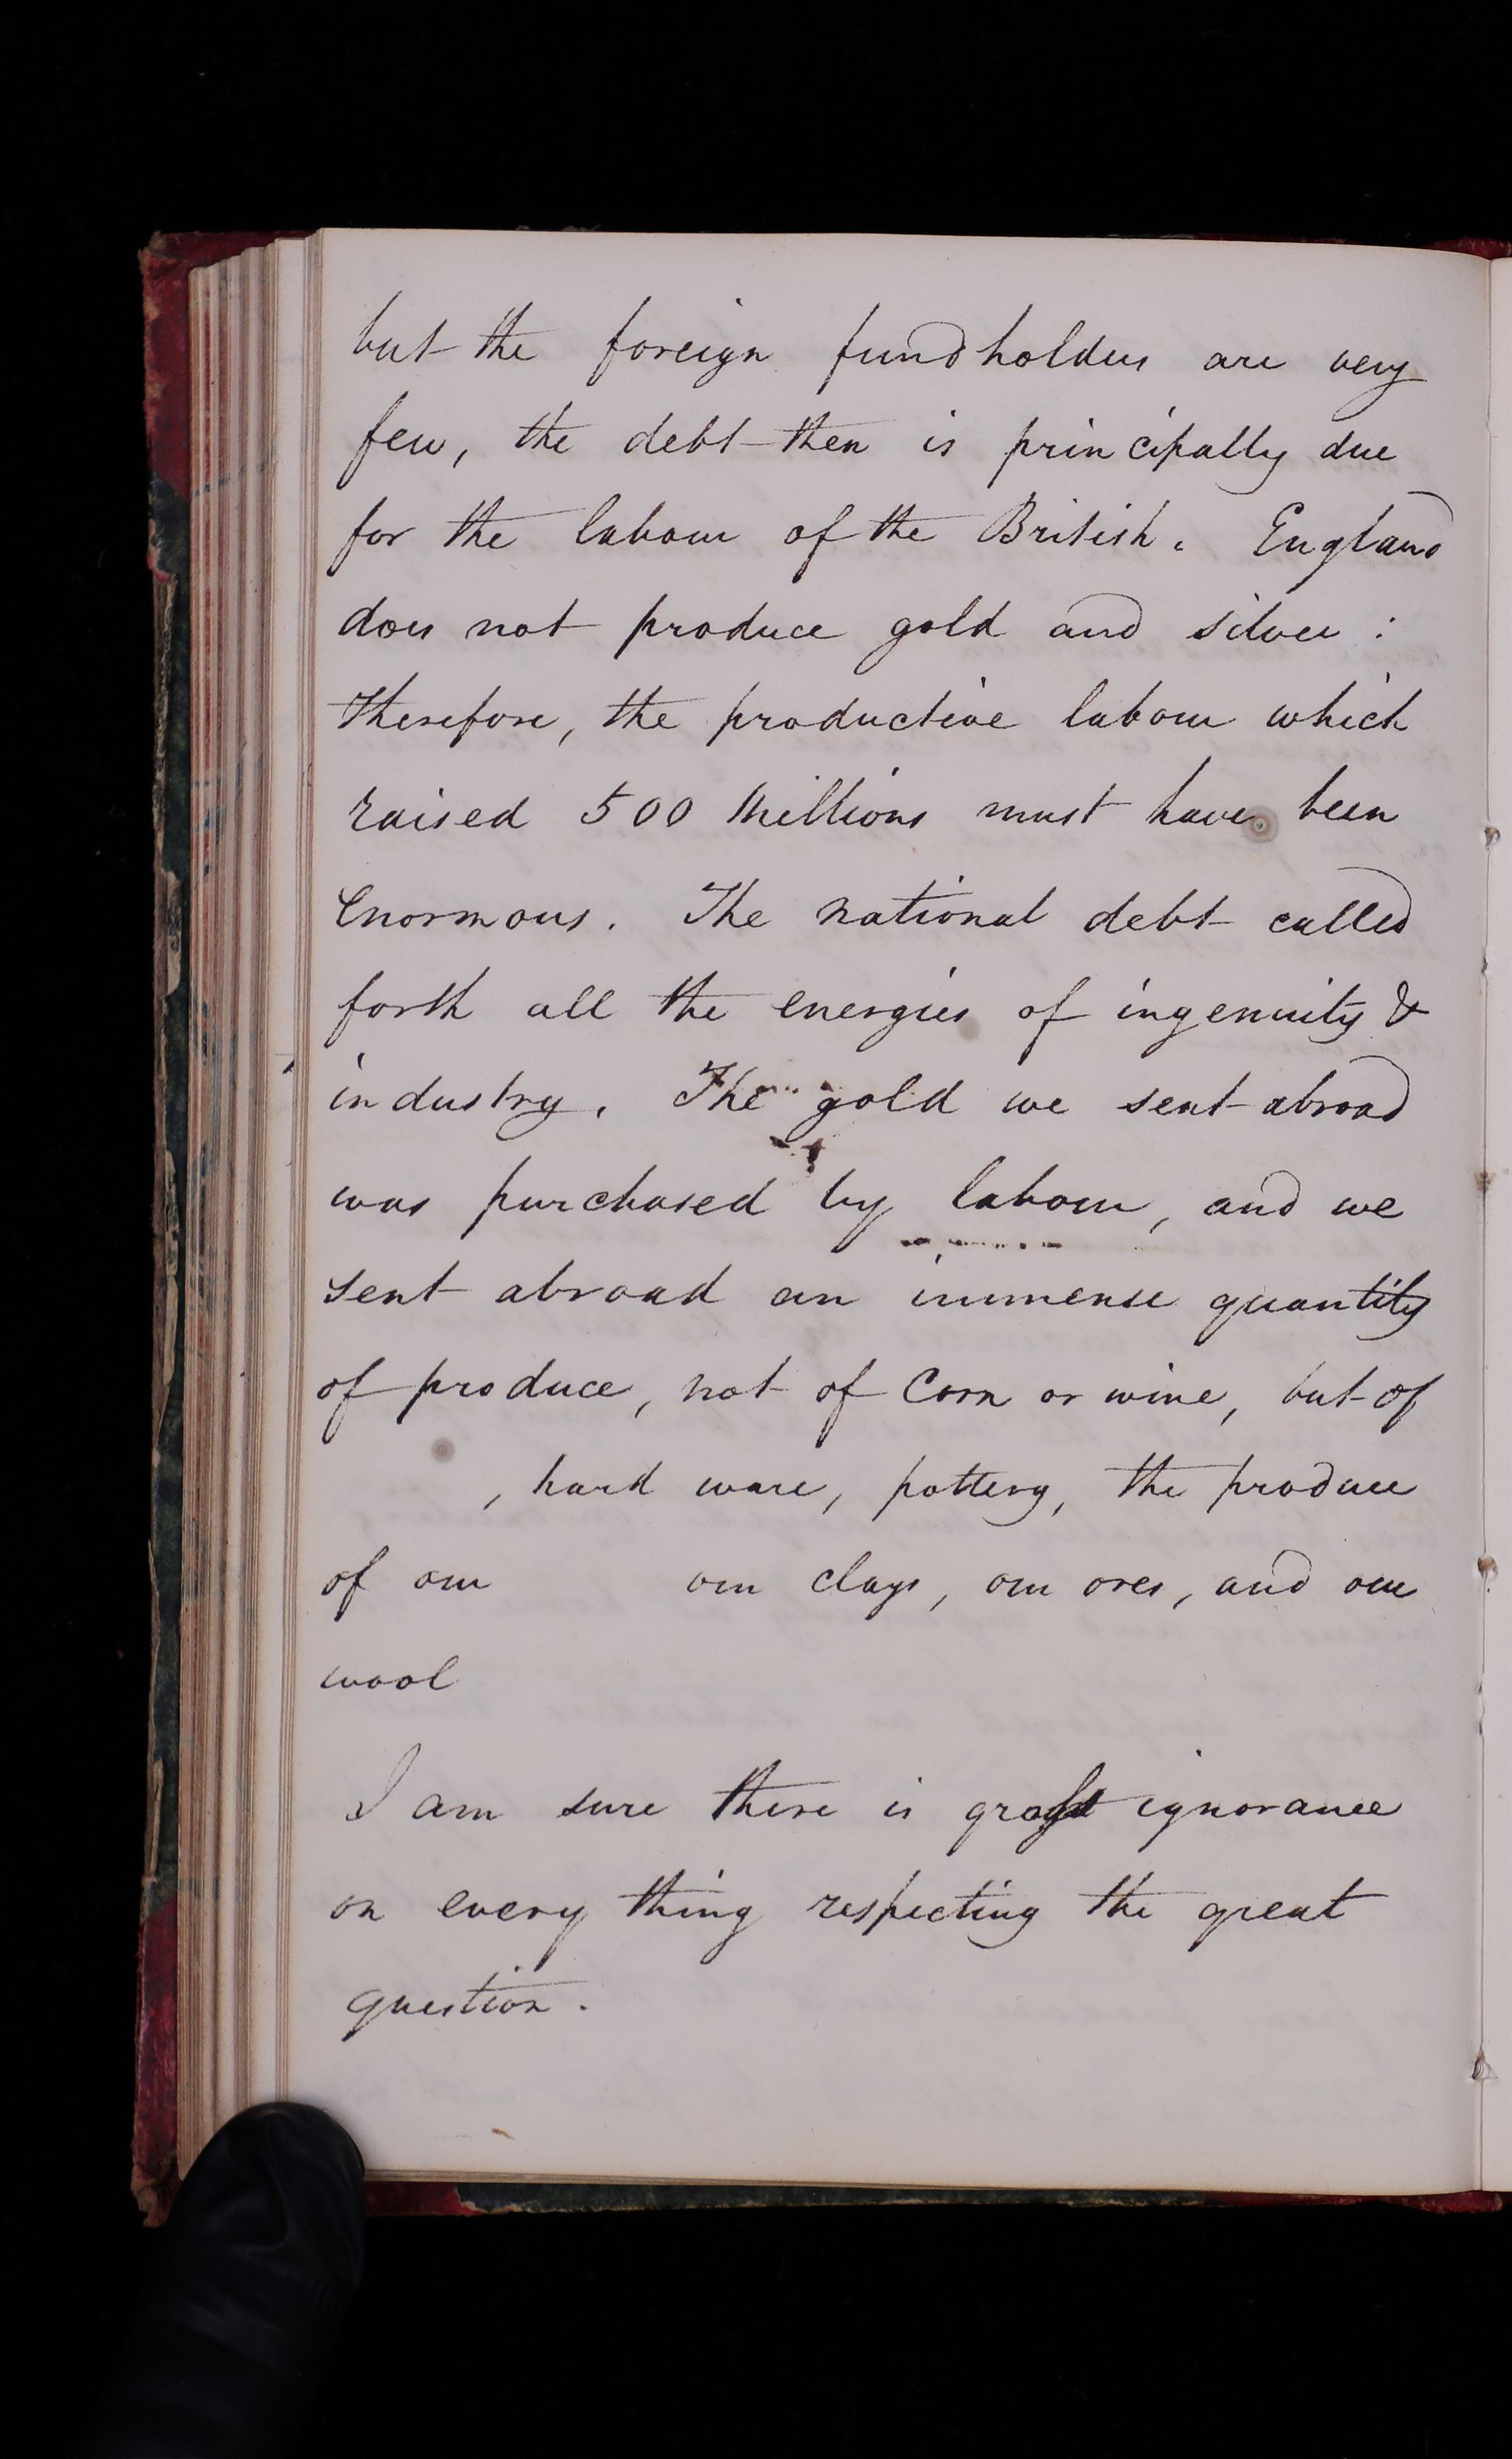 but the foreign fundholders are very
few, the debt then is principally due
for the labour of the British. England
does not produce gold and silver :
Therefore, the productive labour which
raised 500 Millions must have been
enormous. The national debt called
forth all the energies of ingenuity &
industry. The gold we sent abroad
was purchased by labour, and we
sent abroad an immense quantity
of produce, not of Corn or wine, but of
, hard ware, pottery, the produce
of our our clays, our ores, and our
wool
I am sure there is ignorance
on every thing respecting the great
question.